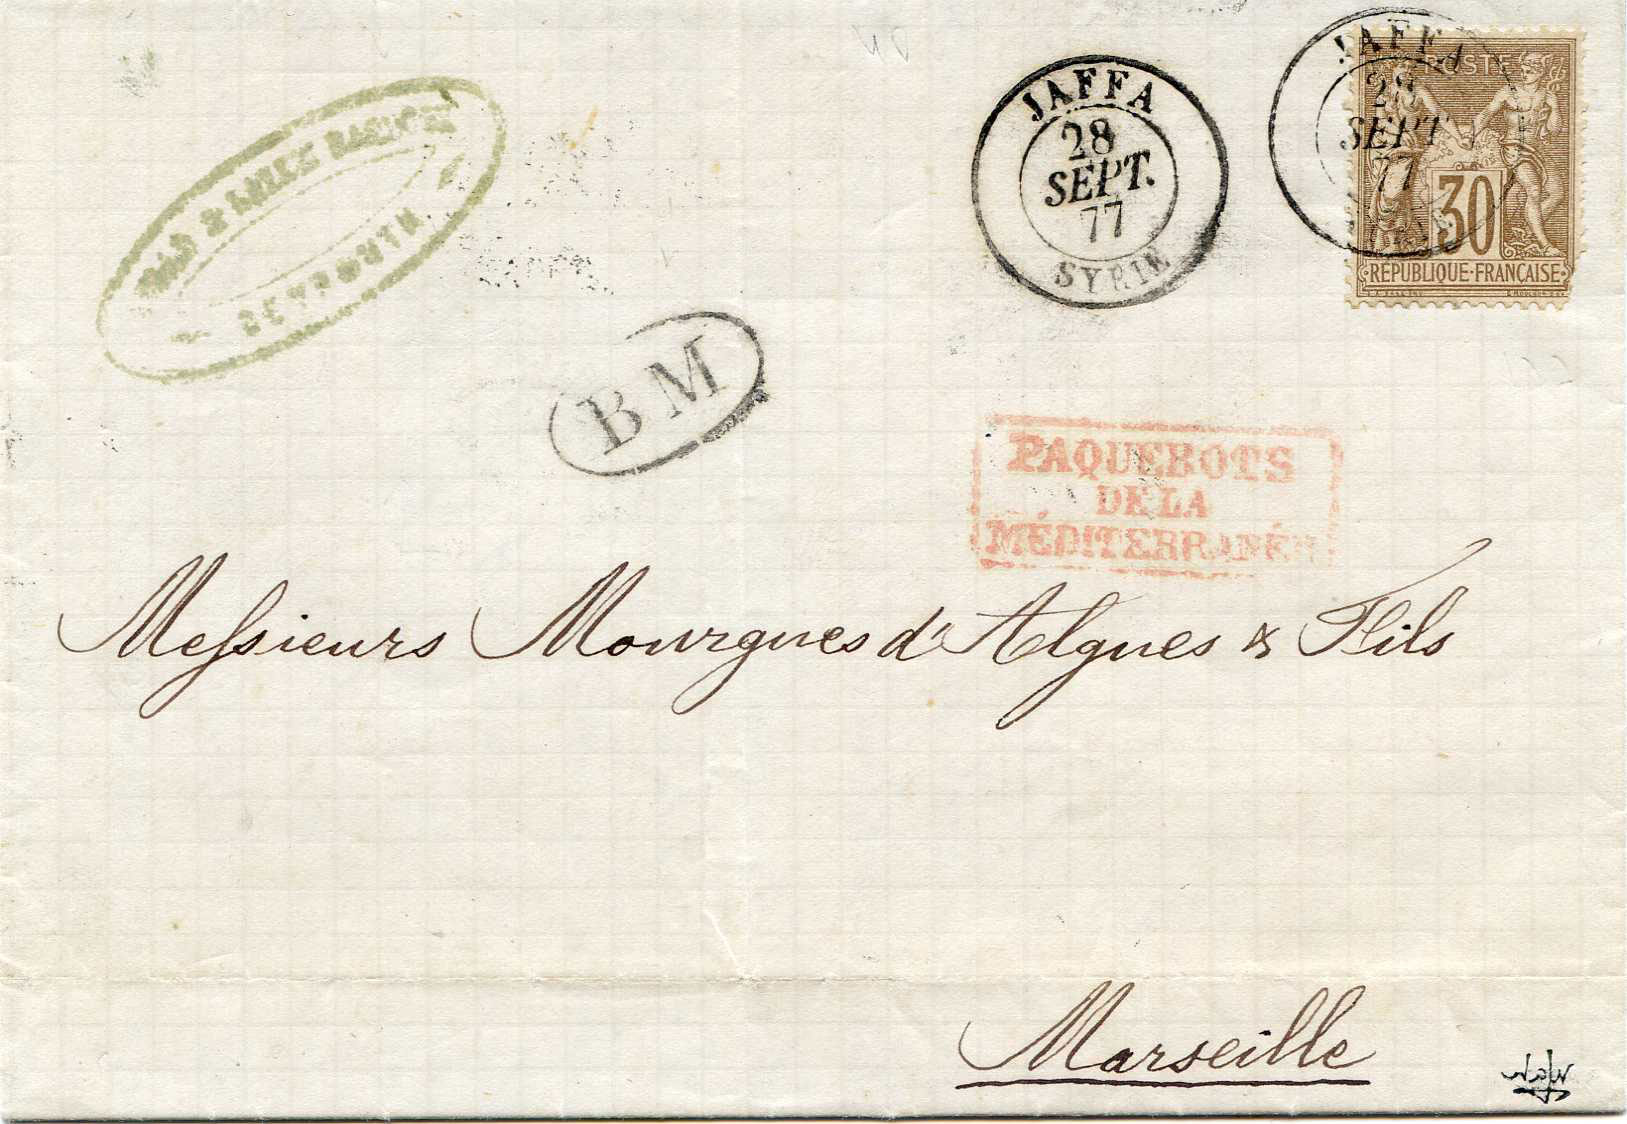 JAFFA
28
SEPT.
77
SYRIE
JAFFA
28
SEPT
77
POSTE
30
REPUBLIQUE·FRANÇAISE
BEYROUTH
BM
PAQUEBOTS
DE LA
MÉDITERRANÉE
Messieurs Mourgues d'Algues & Fils
Marseille